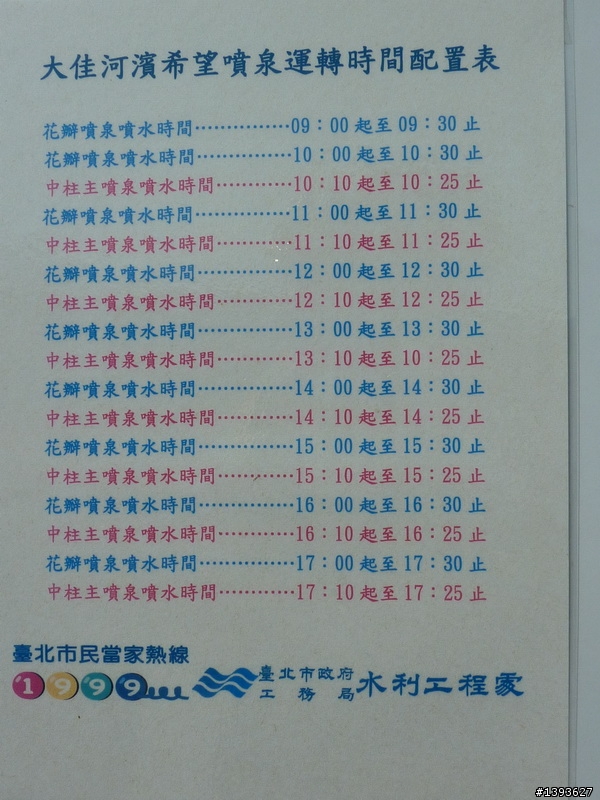 大佳河濱希望噴泉運轉時間配置表
花瓣噴泉噴水時間……………09：00 起至 09：30 止
花瓣噴泉噴水時間……………10：00 起至 10：30 止
中柱主噴泉噴水時間…………10：10 起至 10：25 止
花瓣噴泉噴水時間……………11：00 起至 11：30 止
中柱主噴泉噴水時間…………11：10 起至 11：25 止
花瓣噴泉噴水時間……………12：00 起至 12：30 止
中柱主噴泉噴水時間…………12：10 起至 12：25 止
花瓣噴泉噴水時間……………13：00 起至 13：30 止
中柱主噴泉噴水時間…………13：10 起至 10：25 止
花瓣噴泉噴水時間……………14：00 起至 14：30 止
中柱主噴泉噴水時間…………14：10 起至 14：25 止
花瓣噴泉噴水時間……………15：00 起至 15：30 止
中柱主噴泉噴水時間…………15：10 起至 15：25 止
花瓣噴泉噴水時間……………16：00 起至 16：30 止
中柱主噴泉噴水時間…………16：10 起至 16：25 止
花瓣噴泉噴水時間……………17：00 起至 17：30 止
中柱主噴泉噴水時間…………17：10 起至 17：25 止
臺北市民當家熱線
1999
臺北市政府
工務局
水利工程處
#1393627